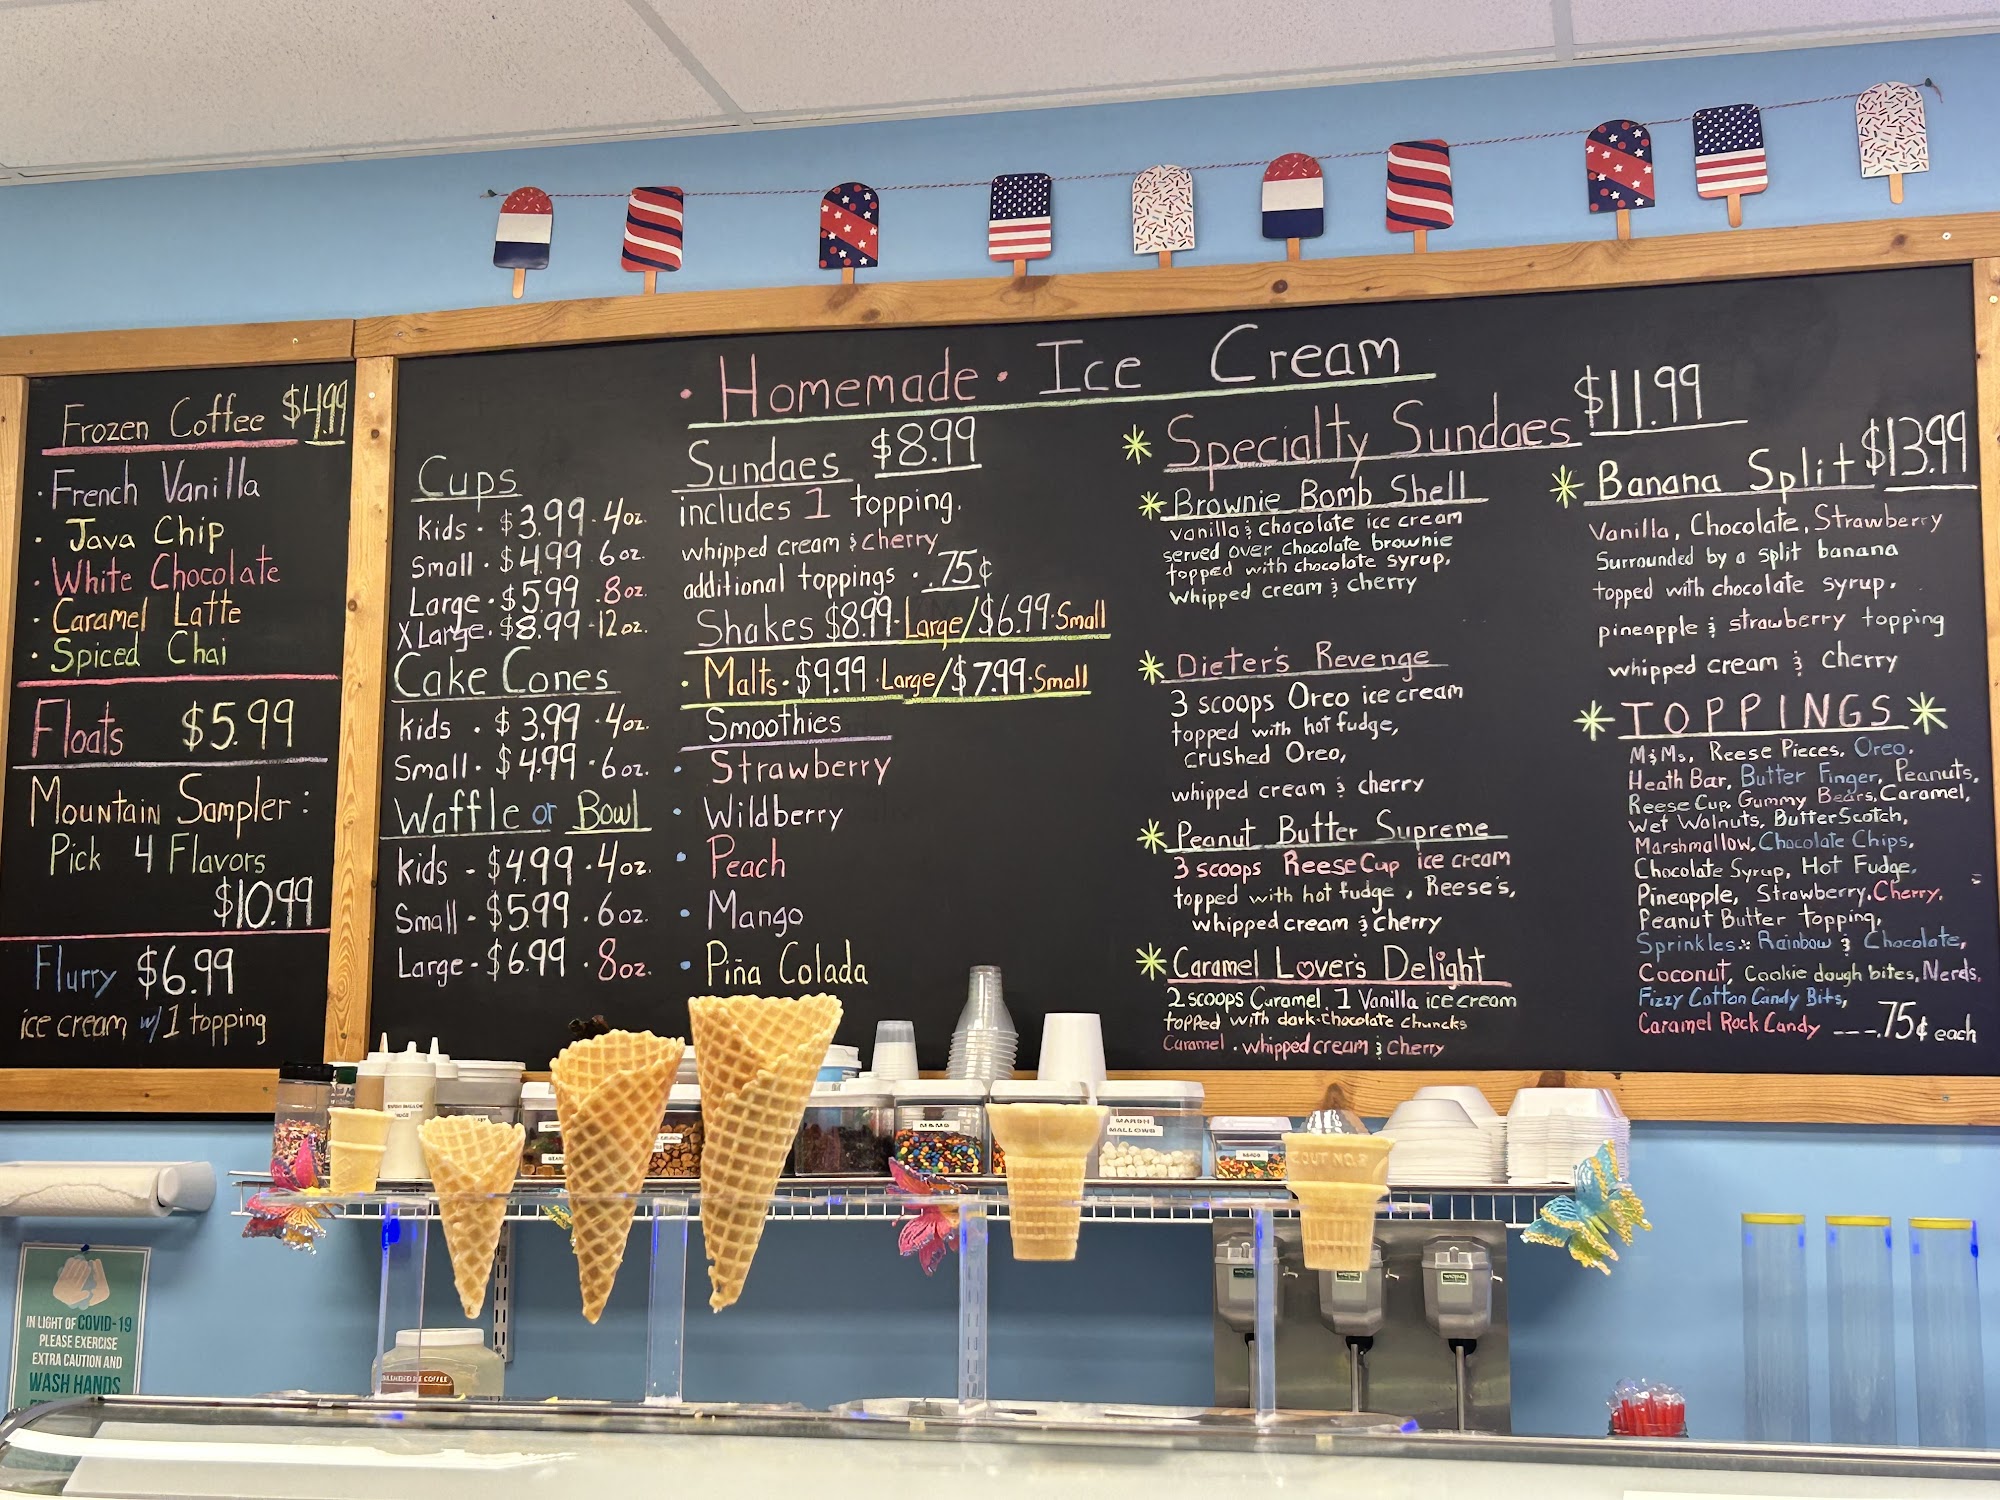 Frozen Coffee $4.99
· French Vanilla
· Java Chip
· White Chocolate
· Caramel Latte
· Spiced Chai
Floats $5.99
Mountain Sampler:
Pick 4 Flavors
$10.99
Flurry $6.99
ice cream w/ 1 topping
· Homemade · Ice Cream
Cups
Kids · $3.99 · 4oz.
Small · $4.99 6oz.
Large · $5.99 · 8oz.
XLarge · $8.99 · 12oz.
Cake Cones
Kids · $3.99 · 4oz.
Small · $4.99 · 6oz.
Waffle or Bowl
Kids - $4.99 · 4oz.
Small - $5.99 · 6oz.
Large - $6.99 · 8oz.
Sundaes $8.99
includes 1 topping.
whipped cream & cherry
additional toppings · .75¢
Shakes $8.99 · Large/$6.99 · Small
· Malts · $9.99 · Large/$7.99 · Small
Smoothies
· Strawberry
· Wildberry
· Peach
· Mango
· Piña Colada
* Specialty Sundaes $11.99
* Brownie Bomb Shell
vanilla & chocolate ice cream
served over chocolate brownie
topped with chocolate syrup,
whipped cream & cherry
* Dieter's Revenge
3 scoops Oreo ice cream
topped with hot fudge,
crushed Oreo,
whipped cream & cherry
* Peanut Butter Supreme
3 scoops Reese Cup ice cream
topped with hot fudge, Reese's,
whipped cream & cherry
* Caramel Lover's Delight
2 scoops Caramel, 1 Vanilla ice cream
topped with dark chocolate chuncks
Caramel · whipped cream & cherry
* Banana Split $13.99
Vanilla, Chocolate, Strawberry
Surrounded by a split banana
topped with chocolate syrup,
pineapple & strawberry topping
whipped cream & cherry
* TOPPINGS *
M&Ms, Reese Pieces, Oreo,
Heath Bar, Butter Finger, Peanuts,
Reese Cup, Gummy Bears, Caramel,
Wet Walnuts, ButterScotch,
Marshmallow, Chocolate Chips,
Chocolate Syrup, Hot Fudge,
Pineapple, Strawberry, Cherry,
Peanut Butter topping,
Sprinkles: Rainbow & Chocolate,
Coconut, Cookie dough bites, Nerds,
Fizzy Cotton Candy Bits,
Caramel Rock Candy ---.75¢ each
M&MS
MARSH
MALLOWS
IN LIGHT OF COVID-19
PLEASE EXERCISE
EXTRA CAUTION AND
WASH HANDS